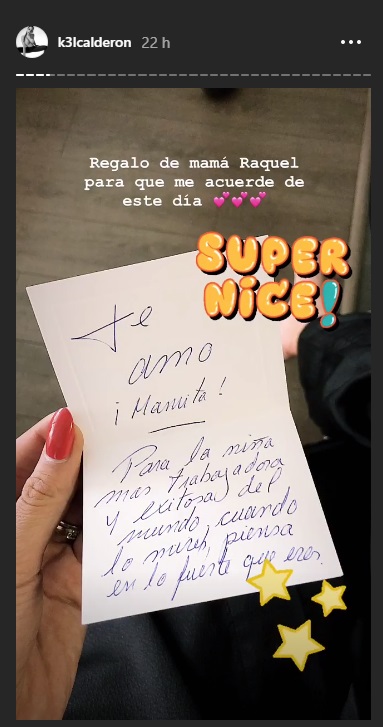 k3lcalderon 22 h
Regalo de mamá Raquel
para que me acuerde de
este día 💕💕💕
SUPER
NiCE!
Te
amo
¡Mamita!
Para la niña
mas trabajadora
y exitosa del
mundo, cuando
lo mires, piensa
en lo fuerte que eres.